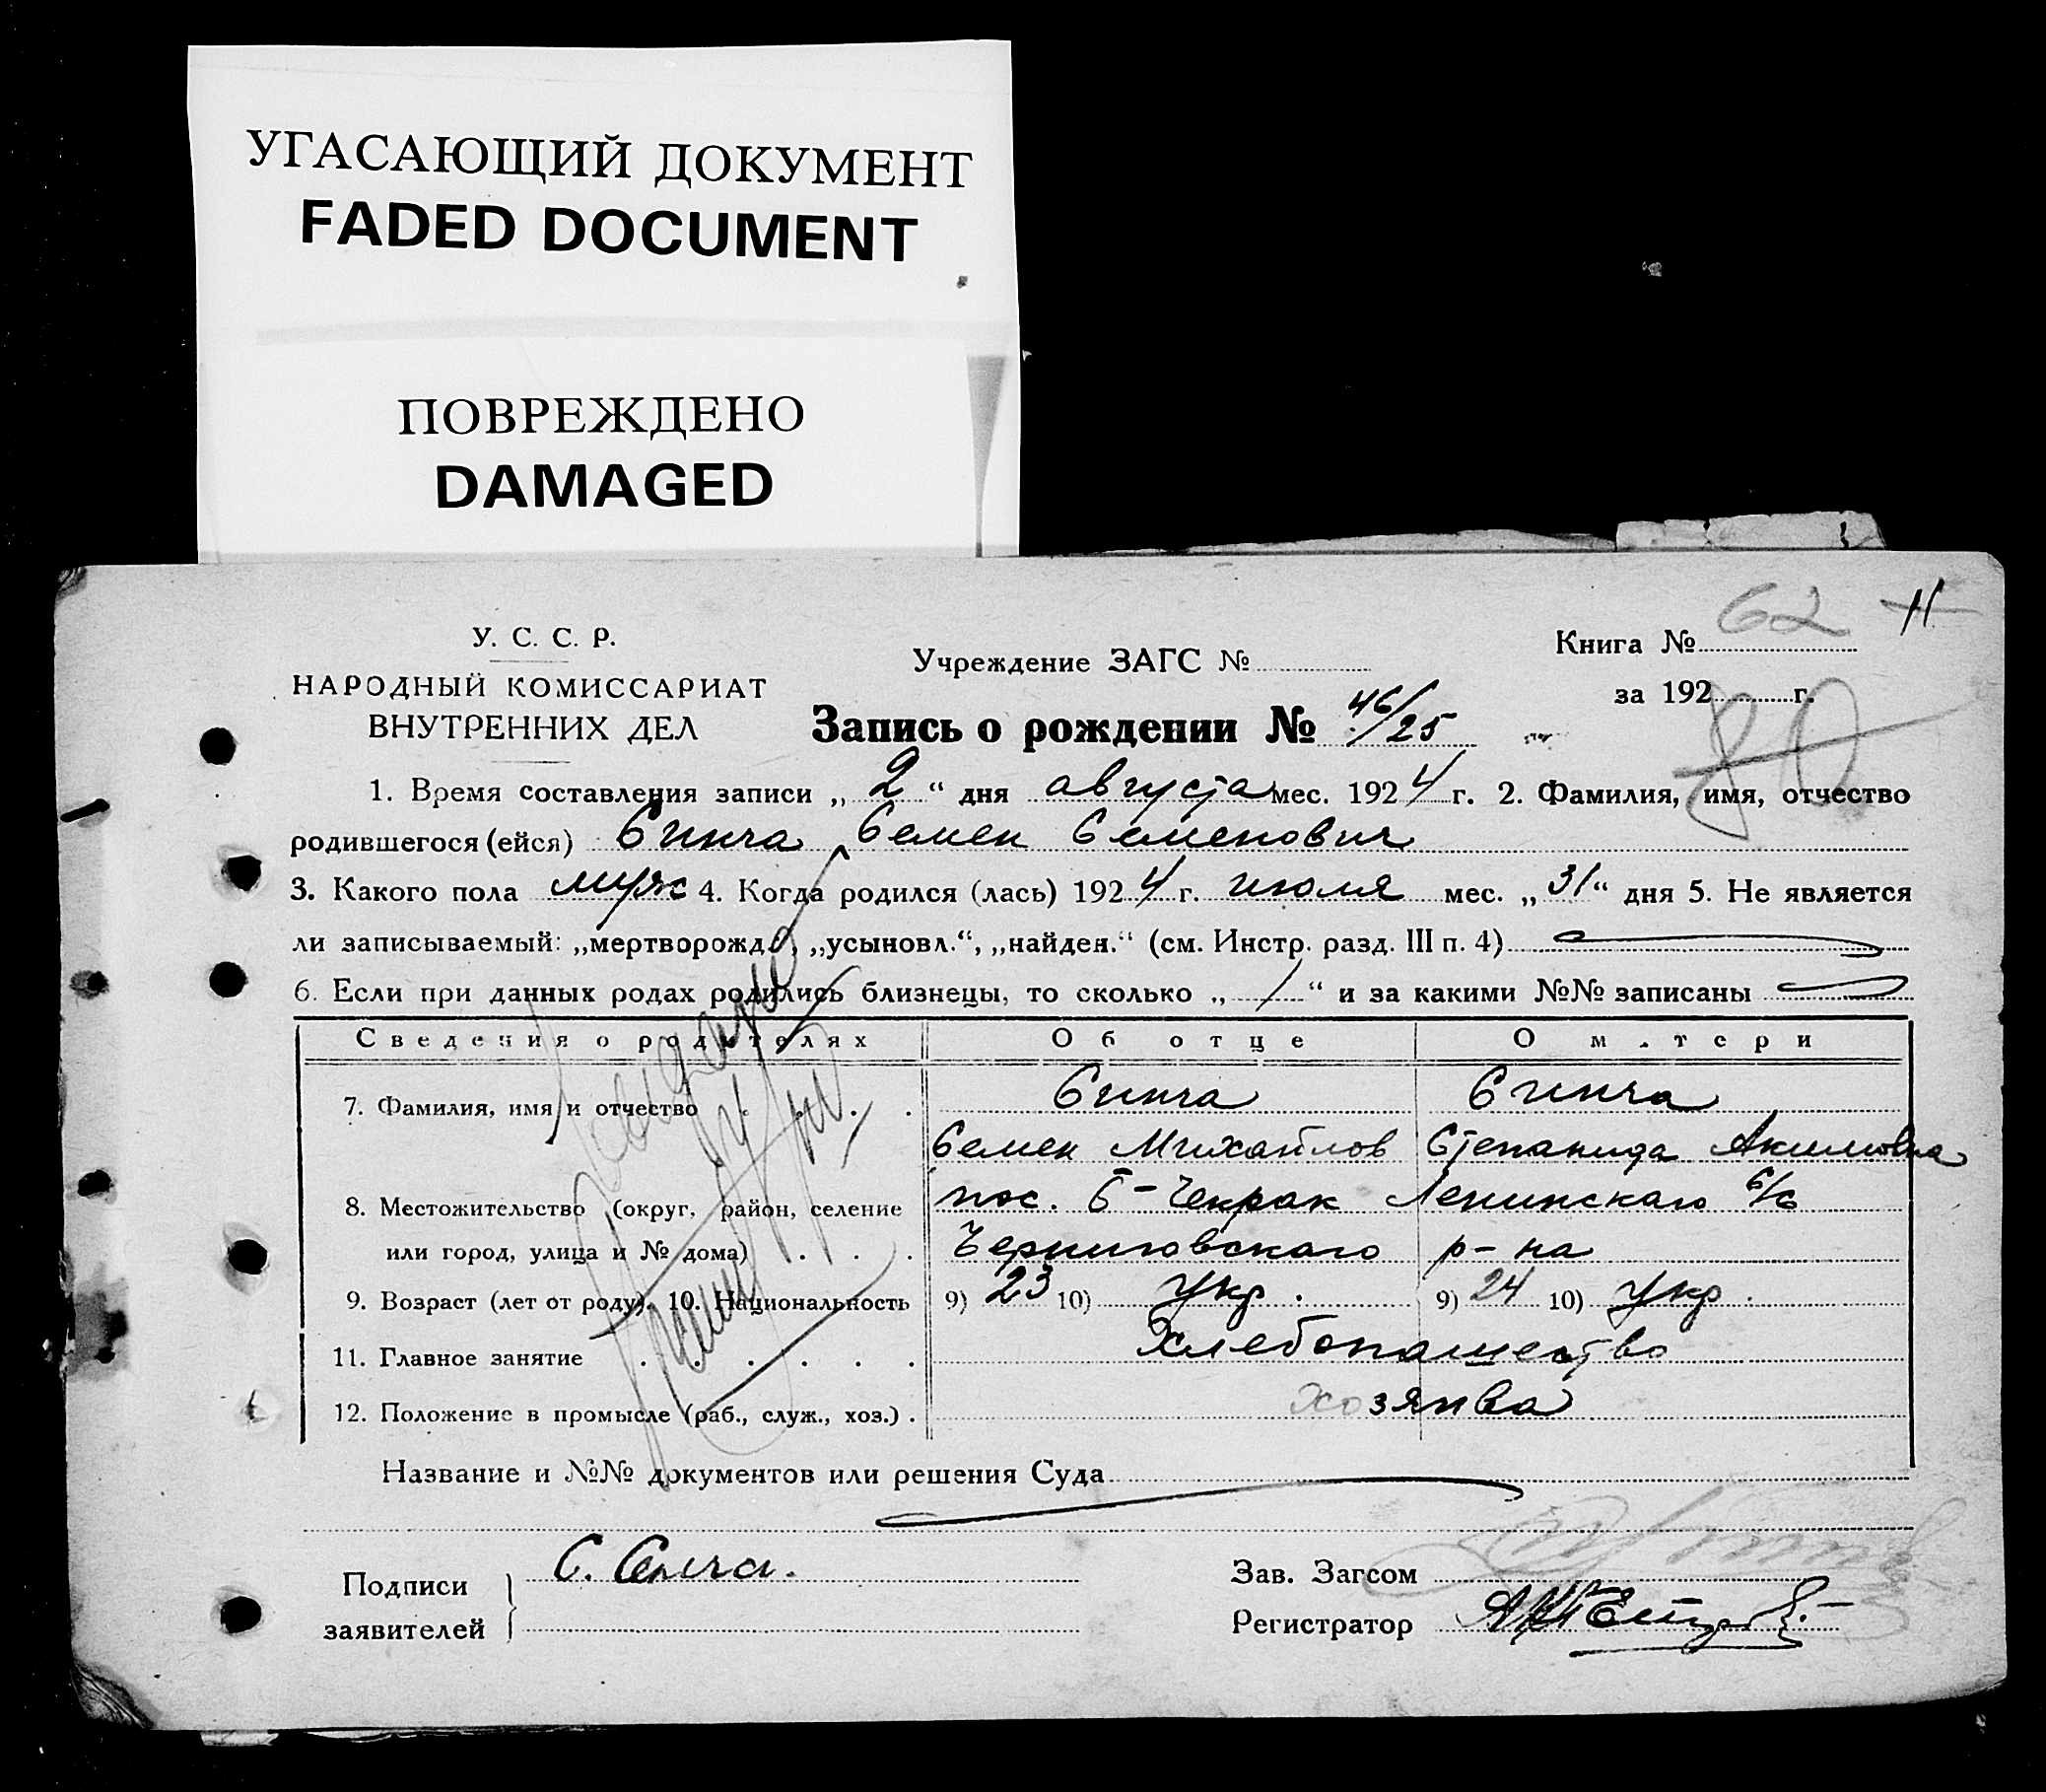 УГАСАЮЩИЙ ДОКУМЕНТ
FADED DOCUMENT
ПОВРЕЖДЕНО
DAMAGED
62 11
У. С. С. Р.
НАРОДНЫЙ КОМИССАРИАТ
ВНУТРЕННИХ ДЕЛ
Учреждение ЗАГС №
Книга №
за 192 г.
Запись о рождении № 46/25
1. Время составления записи „ 2 “ дня августа мес. 1924 г. 2. Фамилия, имя, отчество
родившегося (ейся) Синча Семен Семенович
3. Какого пола муж 4. Когда родился (лась) 1924 г. июля мес. „31“ дня 5. Не является
ли записываемый: „мертворожд.“, „усыновл.“, „найден.“ (см. Инстр. разд. III п. 4)
6. Если при данных родах родились близнецы, то сколько „ / “ и за какими №№ записаны
Сведения о родителях Об отце О матери
7. Фамилия, имя и отчество Синча Синча
Семен Михайлов Степанида Акимовна
8. Местожительство (округ, район, селение пос. Б-Чекрак Ленинскаго с/с
или город, улица и № дома) Черниговскаго р-на
9. Возраст (лет от роду). 10. Национальность 9) 23 10) Укр. 9) 24 10) Укр.
11. Главное занятие Хлебопашество
12. Положение в промысле (раб., служ., хоз.) хозяива
Название и №№ документов или решения Суда
Подписи
заявителей
С. Синча.
Зав. Загсом
Регистратор